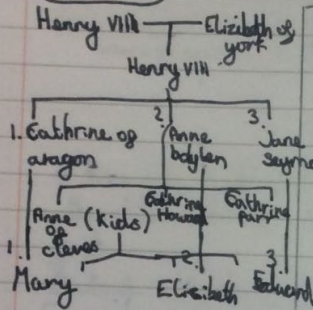 Henry VIII Elizibeth of
york
Henry VIII
1. Cathrine of
aragon
2. Anne
boylen
3. Jane
Seymre
Anne
of
cleves
(Kids)
Cathrine
Howard
Cathrine
parr
1. Mary
2. Elisibeth
3. Edward